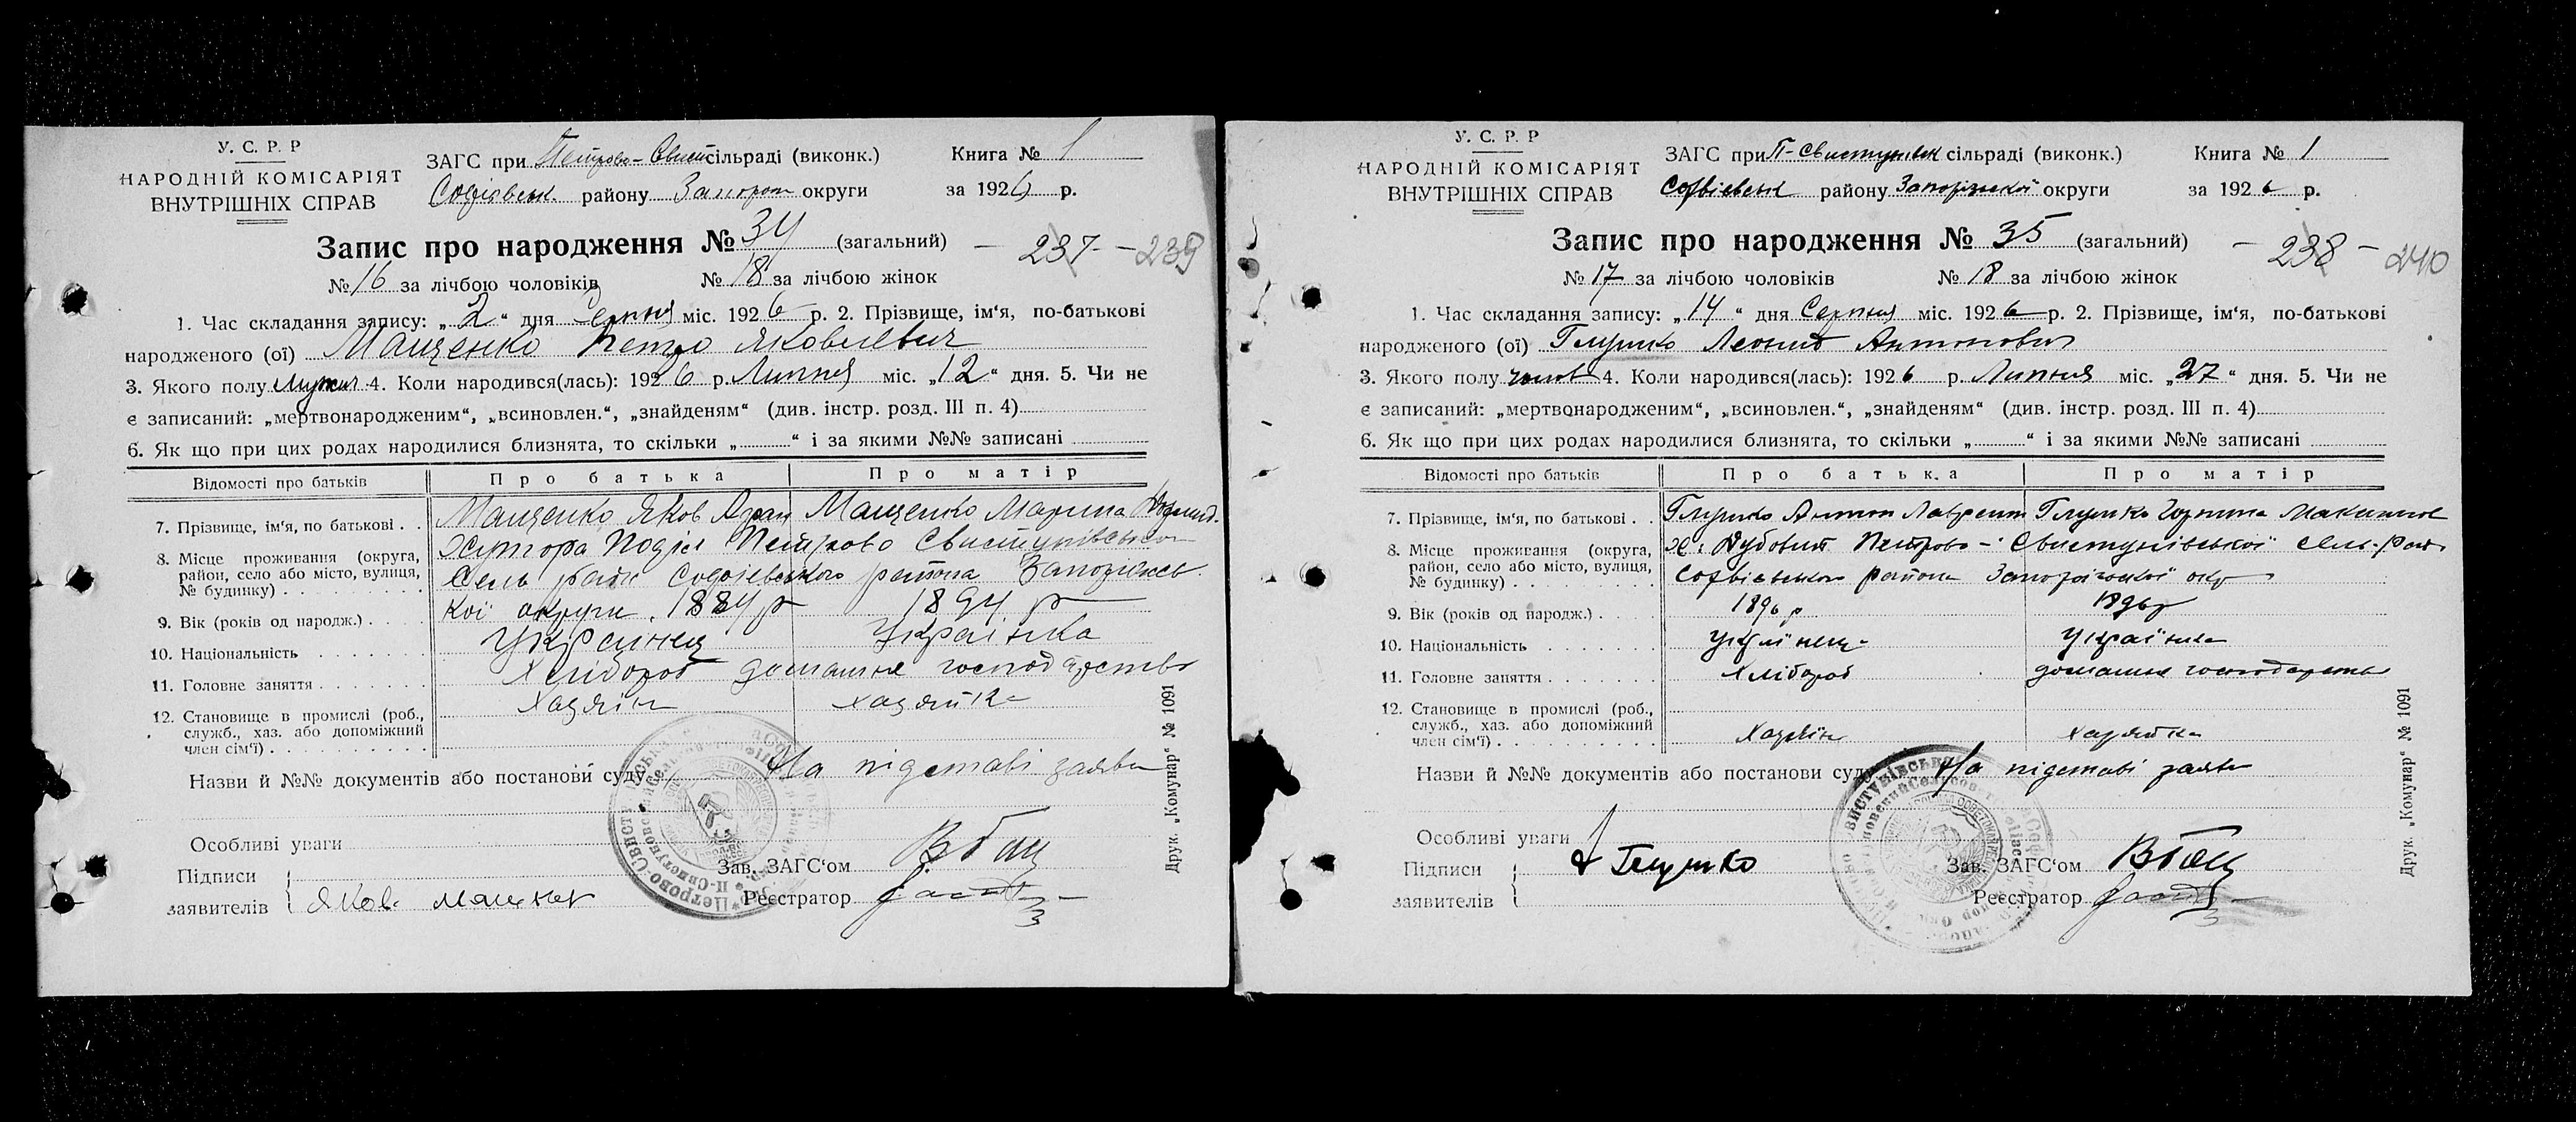 У. С. Р. Р
НАРОДНІЙ КОМІСАРІЯТ
ВНУТРІШНІХ СПРАВ
ЗАГС при Петрово-Свист сільраді (виконк.)
Книга № 1
Софіевськ. району Запорож округи
за 1926 р.
Запис про народження № 34 (загальний)
- 237 - 239
№ 16 за лічбою чоловіків № 18 за лічбою жінок
1. Час складання запису: „2“ дня Серпня міс. 1926 р. 2. Прізвище, ім‘я, по-батькові
народженого (ої) Мащенко Петро Яковлевич
3. Якого полу мужск 4. Коли народився(лась): 1926 р. Липня міс. „12“ дня. 5. Чи не
є записаний: „мертвонародженим“, „всиновлен.“, „знайденям“ (див. інстр. розд. III п. 4)
6. Як що при цих родах народилися близнята, то скільки „ “ і за якими №№ записані
Відомості про батьків Про батька Про матір
7. Прізвище, ім‘я, по батькові . . Мащенко Яков Мащенко Марина
8. Місце проживання (округа, район, село або місто, вулиця, № будинку) Хутора Поділ Петрово Свистунівської
Сель ради Софіевського района Запорожсь
кої округи
9. Вік (років од народж.) 1884 р 1894 р
10. Національність Украинец Українка
11. Головне заняття Хлібороб домашнє господарство
12. Становище в промислі (роб., служб., хаз. або допоміжний член сім‘ї) Хазяїн хазяйка
Назви й №№ документів або постанови суду На підставі заяви
Особливі уваги
Підписи
заявителів Яков
Зав. ЗАГС‘ом
Реєстратор
Друк. „Комунар“ № 1091
У. С. Р. Р
НАРОДНІЙ КОМІСАРІЯТ
ВНУТРІШНІХ СПРАВ
ЗАГС при П-Свистунівск сільраді (виконк.)
Книга № 1
Софіевськ району Запорізької округи
за 1926 р.
Запис про народження № 35 (загальний)
- 238 - 240
№ 17 за лічбою чоловіків № 18 за лічбою жінок
1. Час складання запису: „14“ дня Серпня міс. 1926 р. 2. Прізвище, ім‘я, по-батькові
народженого (ої) Глушко Леонид Антонович
3. Якого полу чолов 4. Коли народився(лась): 1926 р. Липня міс. „27“ дня. 5. Чи не
є записаний: „мертвонародженим“, „всиновлен.“, „знайденям“ (див. інстр. розд. III п. 4)
6. Як що при цих родах народилися близнята, то скільки „ “ і за якими №№ записані
Відомості про батьків Про батька Про матір
7. Прізвище, ім‘я, по батькові . . Глушко Антон Лаврент Глушко Горпина Максимов
8. Місце проживання (округа, район, село або місто, вулиця, № будинку) х. Дубовий Петрово-Свистунівської сель-рад
Софієвського района Запорізької окр
9. Вік (років од народж.) 1896 р 1896 р
10. Національність Українець Українка
11. Головне заняття Хлібороб домашнє господарство
12. Становище в промислі (роб., служб., хаз. або допоміжний член сім‘ї) Хазяїн хазяйка
Назви й №№ документів або постанови суду На підставі заяви
Особливі уваги
Підписи
заявителів А Глушко
Зав. ЗАГС‘ом
Реєстратор
Друк. „Комунар“ № 1091